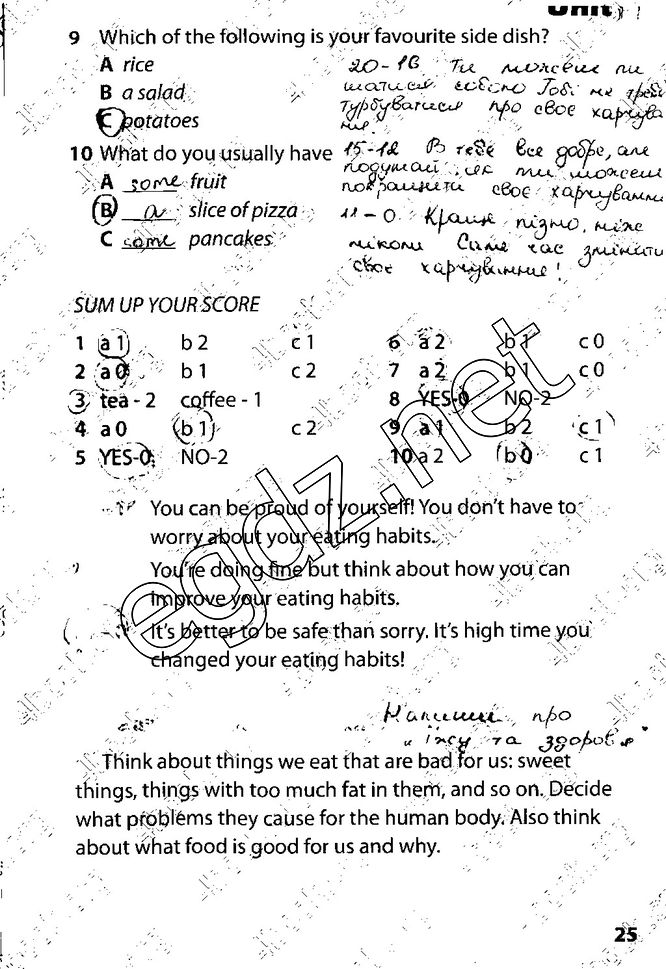 Unit
9 Which of the following is your favourite side dish?
A rice
B a salad
C potatoes
20-16 Ти можеш пи
шатися собою Тобі не треба
турбуватися про своє харчува
ння.
10 What do you usually have
A some fruit
B a slice of pizza
C some pancakes
15-12 В тебе все добре, але
подумай, як ти можеш
покращити своє харчування
11-0 Краще пізно, ніже
ніколи Саме час змінити
своє харчування!
SUM UP YOUR SCORE
1 a 1 b 2 c 1
2 a 0 b 1 c 2
3 tea - 2 coffee - 1
4 a 0 b 1 c 2
5 YES-0 NO-2
6 a 2 b 1 c 0
7 a 2 b 1 c 0
8 YES-0 NO-2
9 a 1 b 2 c 1
10 a 2 b 0 c 1
You can be proud of yourself! You don't have to
worry about your eating habits.
You're doing fine but think about how you can
improve your eating habits.
It's better to be safe than sorry. It's high time you
changed your eating habits!
egdz.net
Напиши про
"їжу та здоров'я"
Think about things we eat that are bad for us: sweet
things, things with too much fat in them, and so on. Decide
what problems they cause for the human body. Also think
about what food is good for us and why.
25